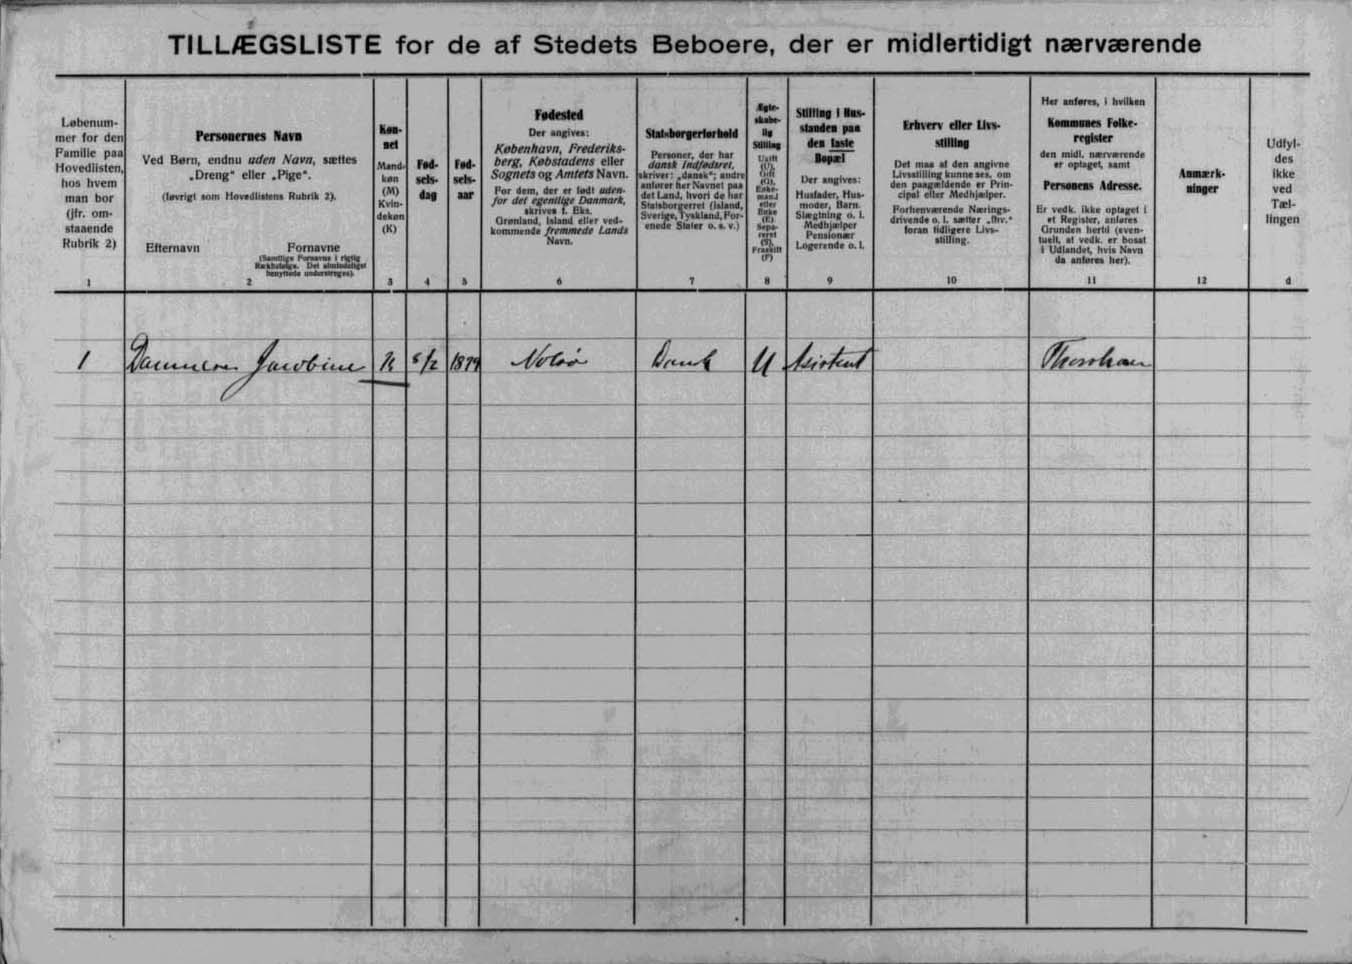 TILLÆGSLISTE for de af Stedets Beboere, der er midlertidigt nærværende
Løbenum-
mer for den
Familie paa
Hovedlisten,
hos hvem
man bor
(jfr. om-
staaende
Rubrik 2)
1
Personernes Navn
Ved Børn, endnu uden Navn, sættes
„Dreng“ eller „Pige“.
(Iøvrigt som Hovedlistens Rubrik 2).
Efternavn Fornavne
(Samtlige Fornavne i rigtig
Rækkefølge. Det almindeligst
benyttede understreges).
2
Køn-
net
Mand-
køn
(M)
Kvin-
dekøn
(K)
3
Fød-
sels-
dag
4
Fød-
sels-
aar
5
Fødested
Der angives:
København, Frederiks-
berg, Købstadens eller
Sognets og Amtets Navn.
For dem, der er født uden-
for det egentlige Danmark,
skrives f. Eks.
Grønland, Island eller ved-
kommende fremmede Lands
Navn.
6
Statsborgerforhold
Personer, der har
dansk Indfødsret,
skriver: „dansk“; andre
anfører her Navnet paa
det Land, hvori de har
Statsborgerret (Island,
Sverige, Tyskland, For-
enede Stater o. s. v.)
7
Ægte-
skabe-
lig
Stilling
Ugift
(U),
Gift
(G),
Enke-
mand
eller
Enke
(E)
Sepa-
reret
(S),
Fraskilt
(F)
8
Stilling i Hus-
standen paa
den faste
Bopæl
Der angives:
Husfader, Hus-
moder, Barn.
Slægtning o. l.
Medhjælper
Pensionær
Logerende o. l.
9
Erhverv eller Livs-
stilling
Det maa af den angivne
Livsstilling kunne ses, om
den paagældende er Prin-
cipal eller Medhjælper.
Forhenværende Nærings-
drivende o. l. sætter „fhv.“
foran tidligere Livs-
stilling.
10
Her anføres, i hvilken
Kommunes Folke-
register
den midl. nærværende
er optaget, samt
Personens Adresse.
Er vedk. ikke optaget i
et Register, anføres
Grunden hertil (even-
tuelt, at vedk. er bosat
i Udlandet, hvis Navn
da anføres her).
11
Anmærk-
ninger
12
Udfyl-
des
ikke
ved
Tæl-
lingen
d
1 Jacobine K 1879 Nolsø Dansk U Assistent Thorshavn